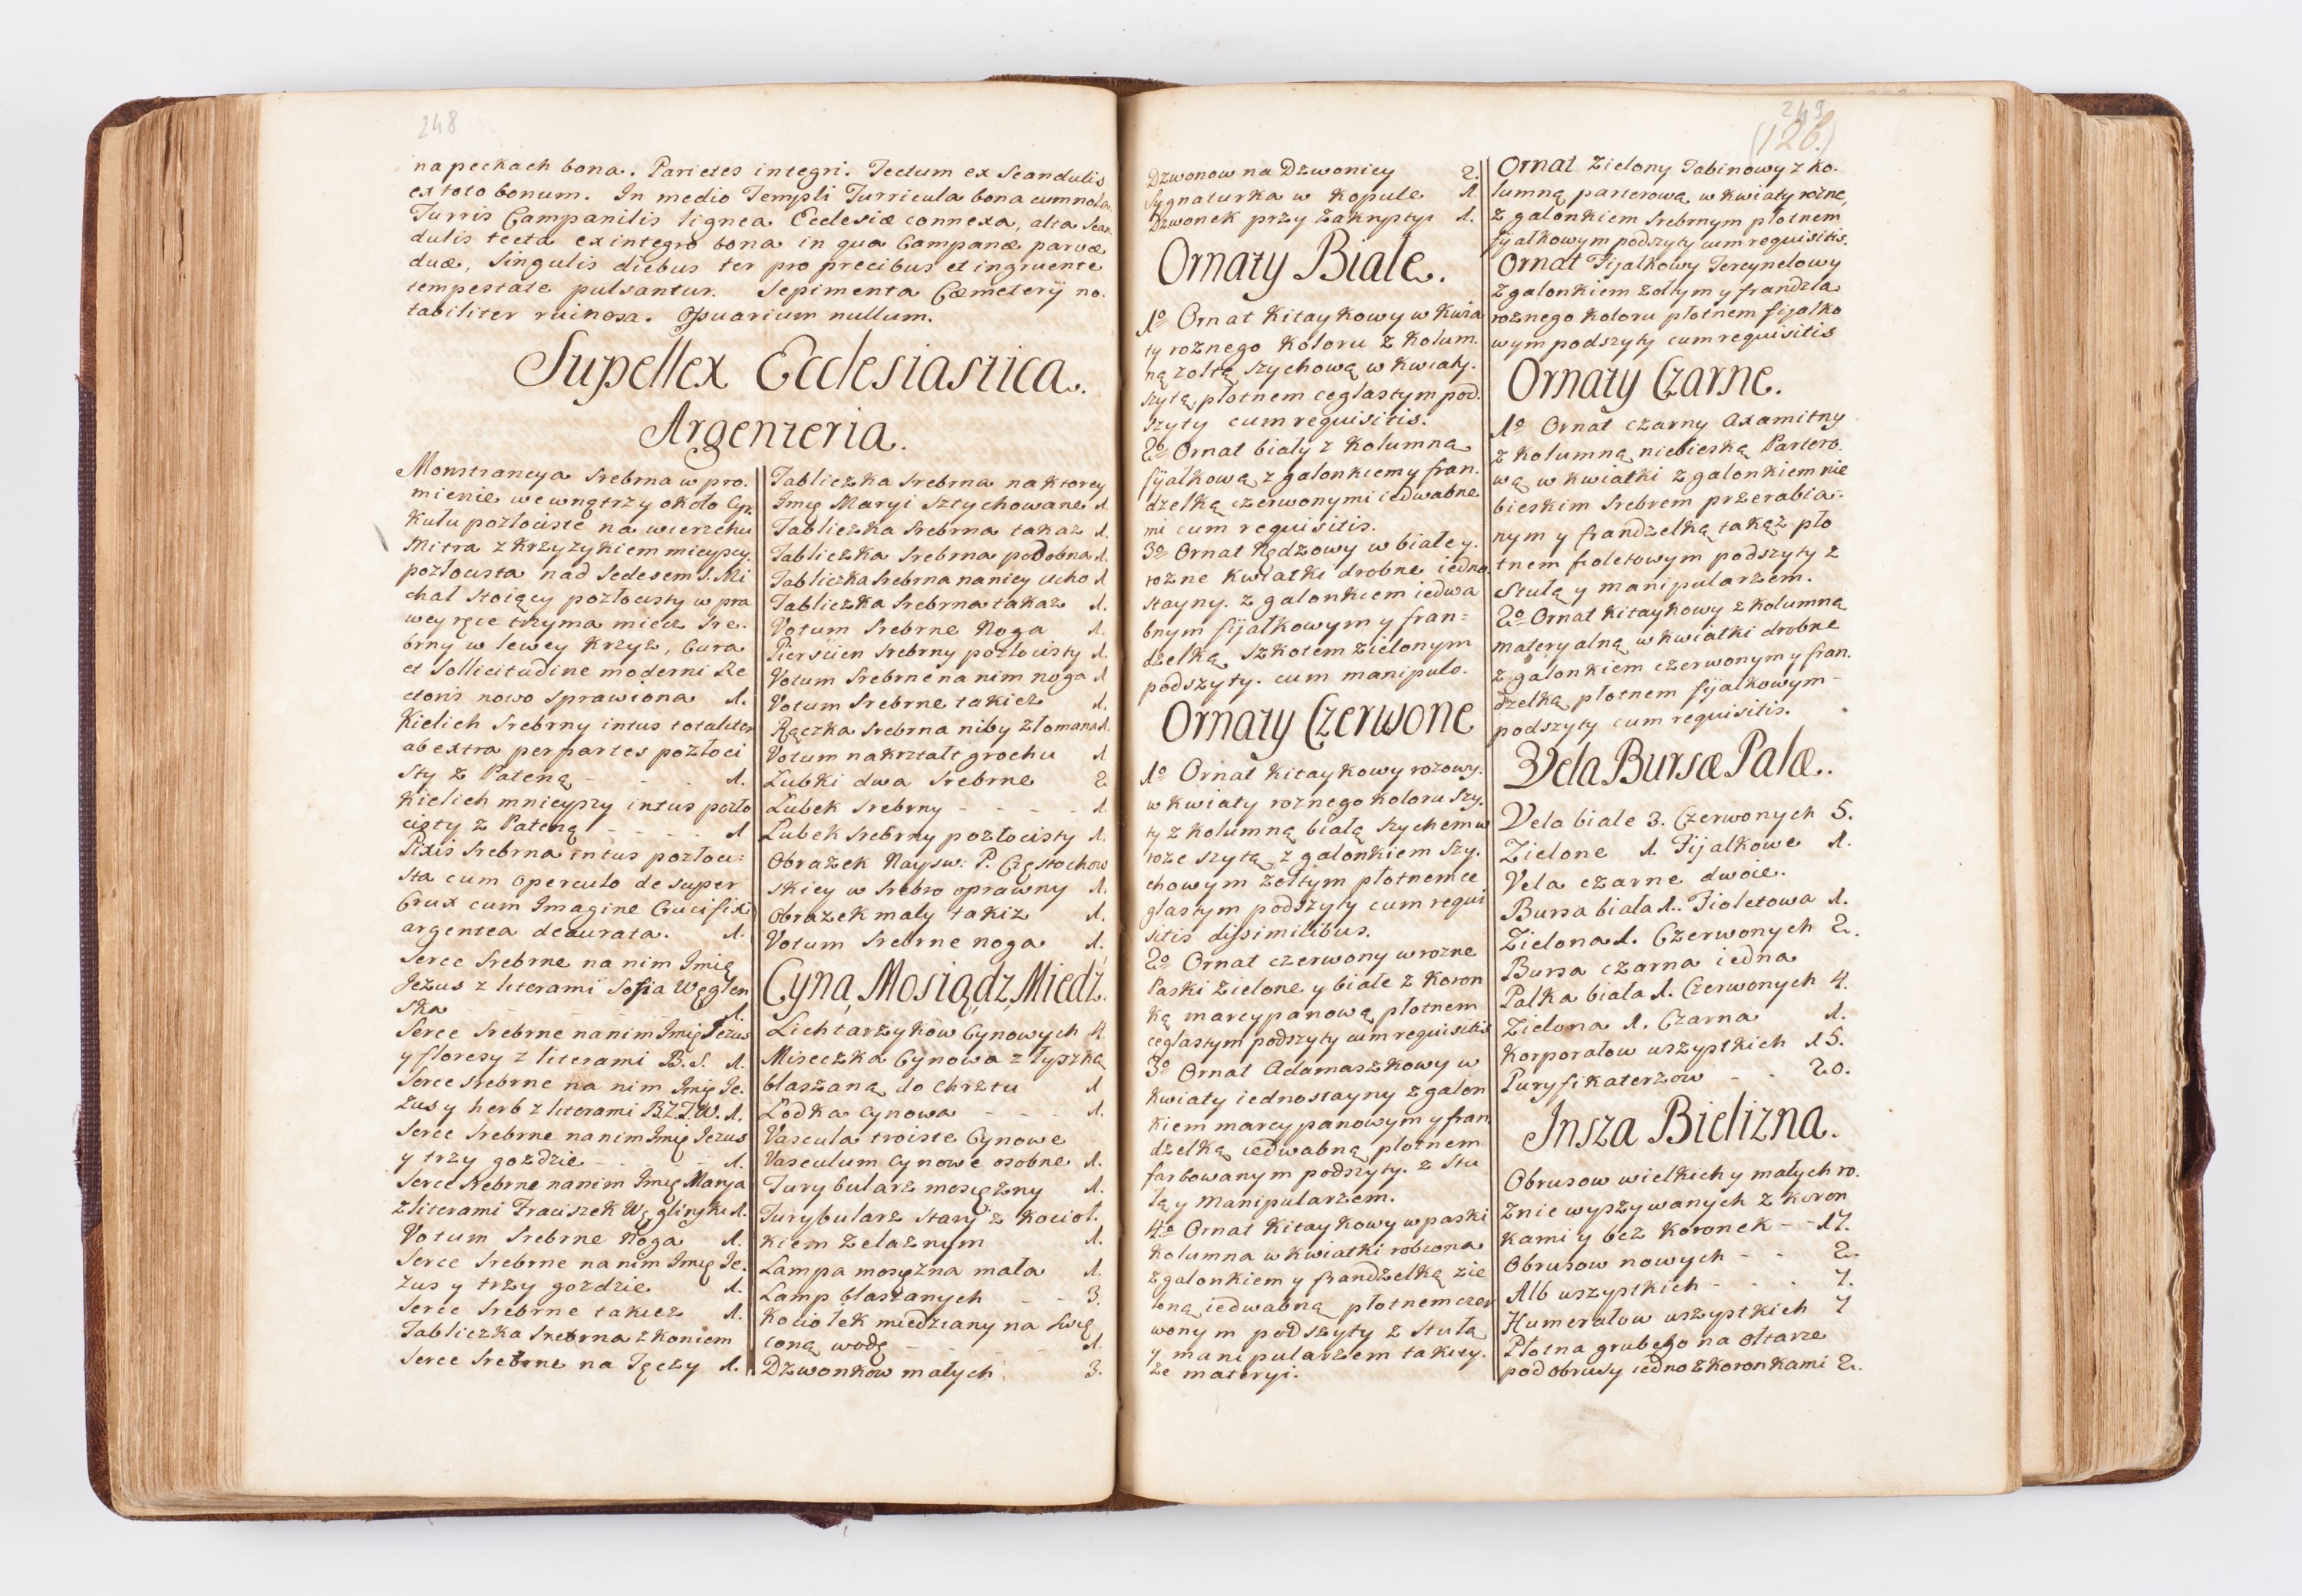 248
na peckach bona. Parietes integri. Tectum ex Scandulis
ex toto bonum. In medio Templi Turricula bona cum nola
Turris Campanilis lignea Ecclesiæ connexa, alta Scan
dulis tecta ex integro bona in qua Campanæ parvæ
duæ, Singulis diebus ter pro precibus et ingruente
tempestate pulsantur. Sepimenta Cæmeterÿ no.
tabiliter ruinosa. Ossuarium nullum.
Supellex Ecclesiastica.
Argenteria.
Monstrancya Srebrna w pro.
mienie wewnątrz y około Cyr.
Kułu pozłociste na wierzchu
Mitra z krzyzykiem mieyscy.
pozłocista nad Sedesem S. Mi
chał stoiący pozłocisty w pra
wey ręce trzyma miecz Sre.
brny w lewey Krzyz, Cura
et Sollicitudine moderni Re
ctoris nowo sprawiona 1.
Kielich Srebrny intus totaliter
ab extra per partes pozłoci
sty z Pateną - - - 1.
Kielich mnieyszy intus pozło
cisty z Pateną - - - - 1
Pixis Srebrna intus pozłoci:
sta cum operculo de super
Crux cum Imagine Crucifixi
argentea deaurata. 1.
Serce Srebrne na nim Imię
Jezus z literami Sofia Węglen
ska - - - - - - - 1.
Serce Srebrne na nim Imię Jezus
y floresy z literami B. S. 1.
Serce srebrne na nim Imię Je.
zus y herb z literami B.Z.T.W. 1.
Serce Srebrne na nim Imię Jezus
y trzy gozdzie - - - - 1.
Serce Srebrne na nim Imię Marya
z literami Fraciszek Węglinski 1.
Votum Srebrne Noga 1.
Serce Srebrne na nim Imię Je.
zus y trzy gozdzie 1.
Serce Srebrne takiez 1.
Tabliczka Srebrna z koniem
Serce Srebrne na Tęczy 1.
Tabliczka Srebrna na ktorey
Imię Maryi Sztychowane 1.
Tabliczka Srebrna takaz 1.
Tabliczka Srebrna podobna 1.
Tabliczka Srebrna na niey ucho 1
Tabliczka Srebrna takaz 1.
Votum Srebrne Noga 1.
Pierscien Srebrny pozłocisty 1.
Votum Srebrne na nim noga 1
Votum Srebrne takiez 1.
Rączka Srebrna niby złomana 1.
Votum na kształt grochu 1
Lubki dwa Srebrne 2
Lubek Srebrny - - - - 1.
Lubek Srebrny pozłocisty 1.
Obrazek Nayśw: P. Częstochow
skiey w Srebro oprawny 1.
Obrazek mały takiz 1.
Votum Srebrne noga 1.
Cyna, Mosiądz, Miedź.
Lichtarzykow Cynowych 4
Miseczka Cynowa z łyszką
blaszaną do Chrztu 1
Lodka Cynowa - - - 1.
Vascula troiste Cynowe
Vasculum Cynowe osobne 1.
Turybularz mosiężny 1.
Turybularz stary z kocioł.
kiem zelaznym 1.
Lampa mosiężna mała 1.
Lamp blaszanych - - 3.
Kociołek miedziany na Swię
coną wodę - - - - - 1.
Dzwonkow małych 3.
249
(126.)
Dzwonow na Dzwonicy 2.
Sygnaturka w kopule 1
Dzwonek przy Zakrystyi 1.
Ornaty Biale.
1º Ornat Kitaykowy w kwia
ty roznego koloru z kolum.
ną zołtą szychową w kwiaty.
szytą, płotnem ceglastym pod.
szyty cum requisitis.
2º Ornat biały z kolumną
fijałkową z galonkiem y fran.
dzelką czerwonymi iedwabne
mi cum requisitis.
3º Ornat Rędzowy w białey.
rozne kwiatki drobne iedno.
stayny. z galonkiem iedwa
bnym fijałkowym y fran=
dzelką szkotem zielonym
podszyty. cum manipulo.
Ornaty Czerwone
1º Ornat Kitaykowy rozowy.
w kwiaty roznego koloru Szy.
ty z kolumną białą szychem w
roze szytą, z galonkiem Szy.
chowym żołtym płotnem ce
glastym podszyty cum requi
sitis dissimilibus.
2º Ornat czerwony w rozne
Paski zielone y białe z koron
ką marcypanową płotnem
ceglastym podszyty cum requisitis
3º Ornat Adamaszkowy w
kwiaty iednostayny z galon
kiem marcypanowym y fran
dzelką iedwabną płotnem
farbowanym podszyty. z Stu
łą y Manipularzem.
4º Ornat Kitaykowy w paski
Kolumna w kwiatki robiona
z galonkiem y frandzelką zie
loną iedwabną płotnem czer
wonym podszyty z Stułą
y manipularzem takiey.
ze materyi.
Ornat Zielony Tabinowy z ko.
lumną parterową w kwiaty rozne,
z galonkiem Srebrnym płotnem
fijałkowym podszyty cum requisitis.
Ornat Fijałkowy Tercynelowy
z galonkiem żołtym y frandzlą
roznego koloru płotnem fijałko
wym podszyty cum requisitis
Ornaty Czarne.
1º Ornat czarny Axamitny
z kolumną niebieską Partero.
wą w kwiatki z galonkiem nie
bieskim Srebrem przerabia=
nym y frandzelką takąz pło
tnem fioletowym podszyty z
Stułą y manipularzem.
2º Ornat Kitaykowy z kolumną
materyalną w kwiatki drobne
z galonkiem czerwonym y fran.
dzelką płotnem fijałkowym -
podszyty cum requisitis.
Vela Bursæ Palæ.
Vela biale 3. Czerwonych 5.
Zielone 1. Fijalkowe 1.
Vela czarne dwoie.
Bursa biała 1. Fioletowa 1.
Zielona 1. Czerwonych 2.
Bursa czarna iedna
Palka biała 1. Czerwonych 4.
Zielona 1. Czarna 1.
Korporałow wszystkich 15.
Puryfikaterzow - - 20.
Insza Bielizna.
Obrusow wielkich y małych ro.
znie wyszywanych z koron
kami y bez koronek - - 17.
Obrusow nowych - - 2.
Alb wszystkich - - - 7.
Humerałow wszystkich 7
Płotna grubego na ołtarze
pod obrusy iedno z koronkami 2.